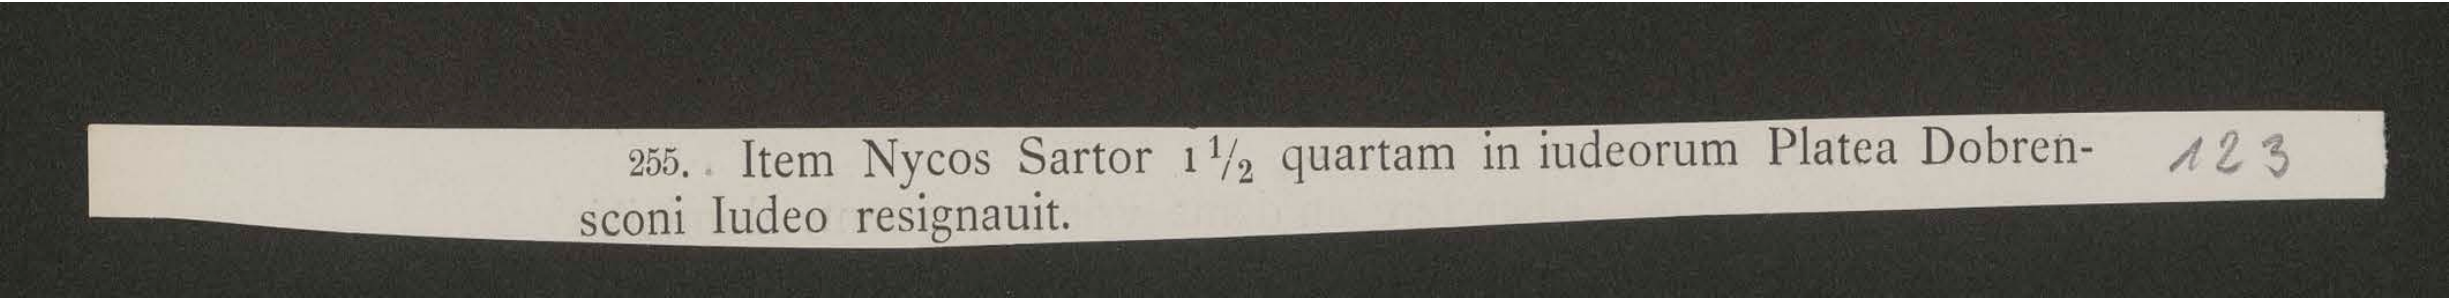 255. Item Nycos Sartor 1 1/2 quartam in iudeorum Platea Dobren- 123
sconi Iudeo resignauit.